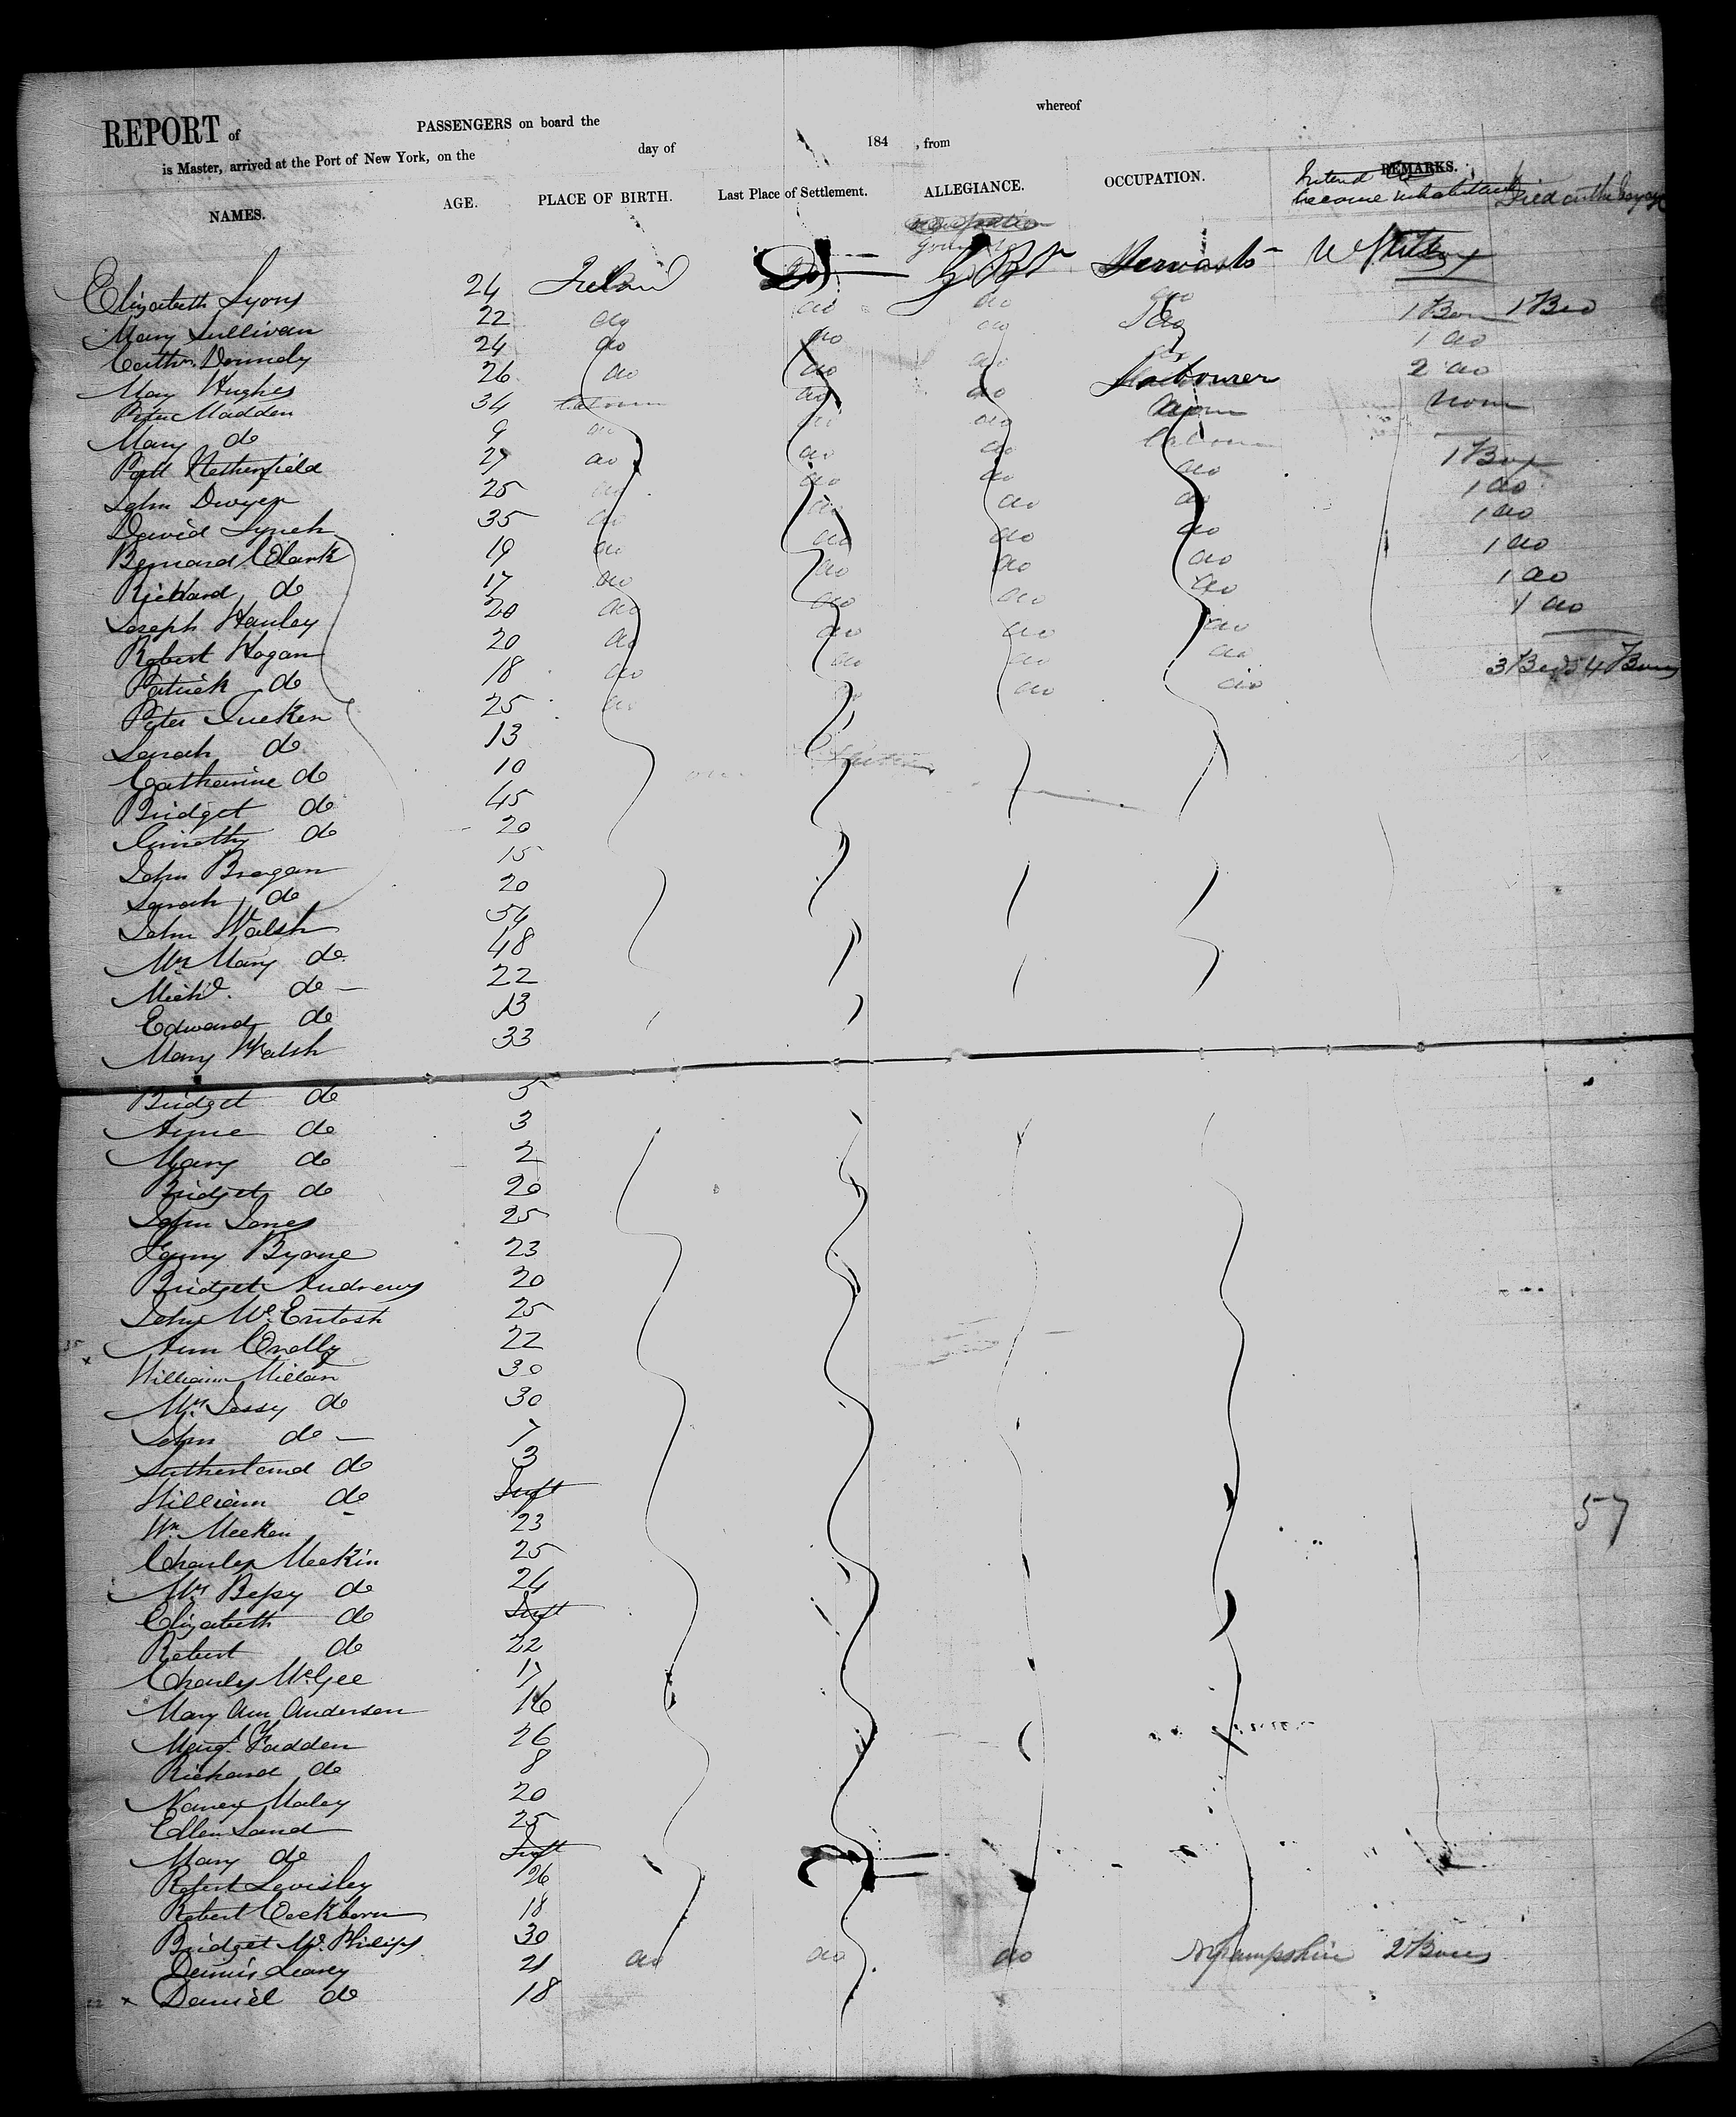 whereof
REPORT of PASSENGERS on board the
is Master, arrived at the Port of New York, on the day of 184 , from
NAMES. AGE. PLACE OF BIRTH. Last Place of Settlement. ALLEGIANCE. OCCUPATION. REMARKS.
Intend to become inhabitants Died on the voyage
Elizabeth Lyons 24 Ireland Do G. Br Servants U States
Mary Sullivan 22 do do do do 1 Box 1 Bed
Cathn. Donnely 24 do do do 1 do
Mary Hughes 26 do do do 2 do
Peter Madden 34 do do Labourer None
Mary do 9 do do do
Patt Netherfield 27 do do do 1 Box
John Dwyer 25 do do do do 1 do
David Lynch 35 do do do do 1 do
Bernard Clark 19 do do do do 1 do
Richard do 17 do do do do 1 do
Joseph Hanley 20 do do do do 1 do
Robert Hogan 20 do do do do
Patrick do 18 do do do do 3 Beds 4 Boxes
Peter 25 do do do
Sarah do 13
Catharine do 10
Bridget do 45
Timothy do 20
John Brogan 15
Sarah do 20
John Walsh 54
Mrs Mary do 48
Michl. do 22
Edward do 13
Mary Walsh 33
Bridget do 5
Anne do 3
Mary do 2
Bridget do 20
John Jones 25
Fanny Byrne 23
Bridget Andrews 20
John McEntosh 25
Ann Conelly 22
William Millan 30
Mrs Jessy do 30
John do 7
Sutherland do 3
William do Inft
Wm Meeken 23
Charles Meekin 25
Mrs Bessy do 24
Elizabeth do Inft
Robert do 22
Charles McGee 17
Mary Ann Anderson 16
Margt. Fadden 26
Richard do 8
Nancy Maley 20
Ellen Land 25
Mary do Inft
Robert Levisley 26
Robert Cockborn 18
Bridget McPhilips 30
Dennis Leary 21 do do do N Hampshire 2 Boxes
Daniel do 18
57